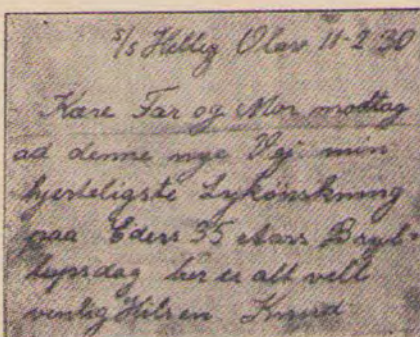 s/s Hellig Olav 11-2 30
Kære Far og Mor modtag
ad denne nye Vej min
hjerteligste Lykönskning
paa Eders 35 Aars Bryl-
lupsdag her er alt vell
venlig Hilsen Knud